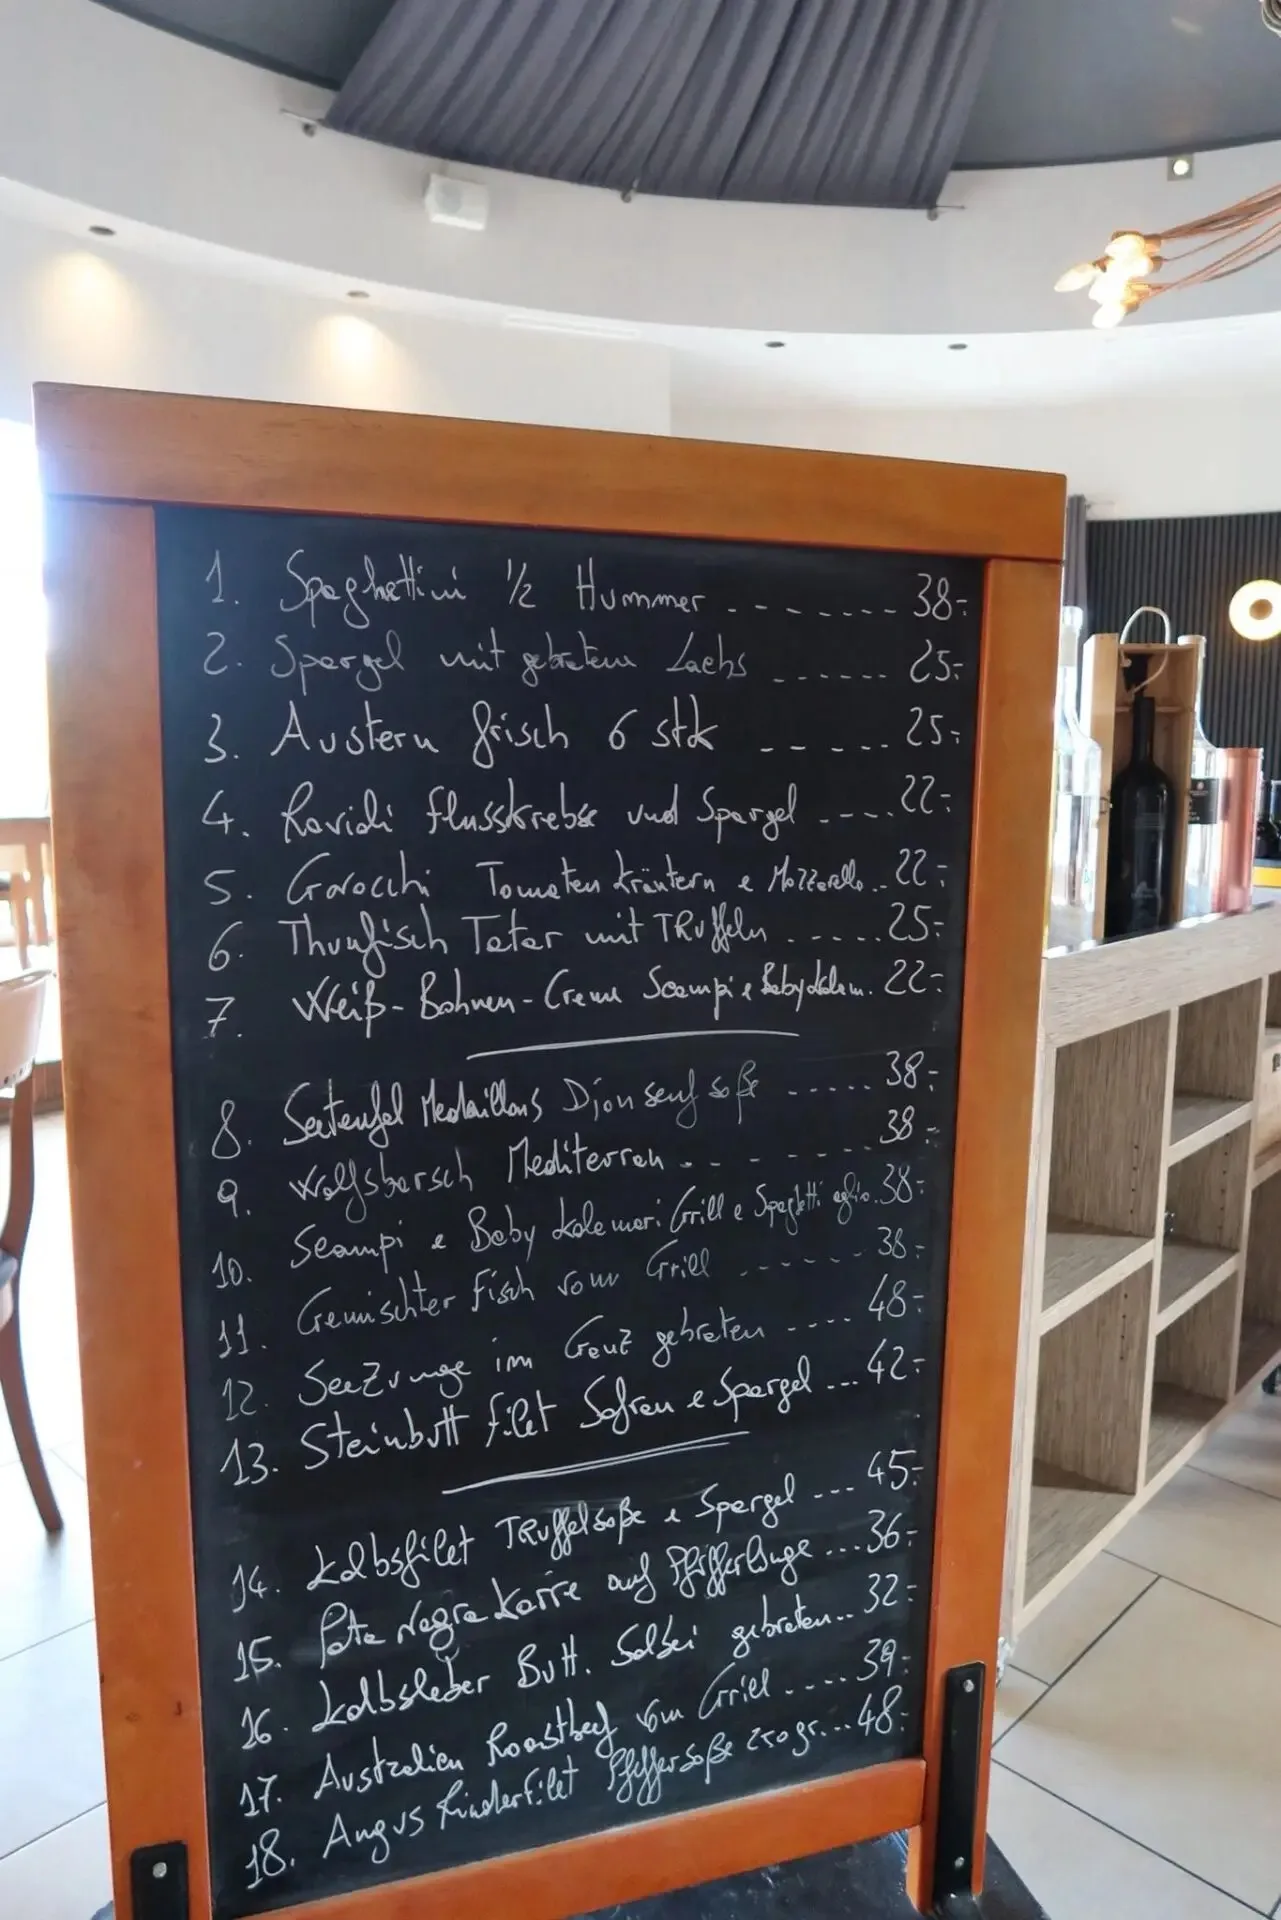 1. Spaghettini 1/2 Hummer - - - - - - - 38-
2. Spargel mit gebratem Lachs - - - - - - 25-
3. Austern frisch 6 stk - - - - - 25-
4. Ravioli flusskrebse und Spargel - - - - 22-
5. Gnocchi Tomaten kräutern e Mozzarella .. 22-
6. Thunfisch Tatar mit TRüffeln - - - - - 25-
7. Weiß-Bohnen-Creme Scampi e Baby 22-
8. Seeteufel Medaillons Dijon senf soße - - - - - 38-
9. Wolfsbarsch Mediterran - - - - - - - 38-
10. Scampi e Baby kalamari Grill e Spaghetti aglio. 38-
11. Gemischter fisch vom Grill - - - - - - 38-
12. SeeZunge im GanZ gebraten - - - - 48-
13. Steinbutt filet Safran e Spargel ... 42-
14. kalbsfilet TRüffelsoße e Spargel --- 45-
15. Pata Negra karre auf Pfifferlinge ... 36-
16. kalbsleber Butt. Salbei gebraten .. 32-
17. Australien Roastbeef vom Grill - - - - 39-
18. Angus Rinderfilet Pfeffersoße 250 gr. .. 48-